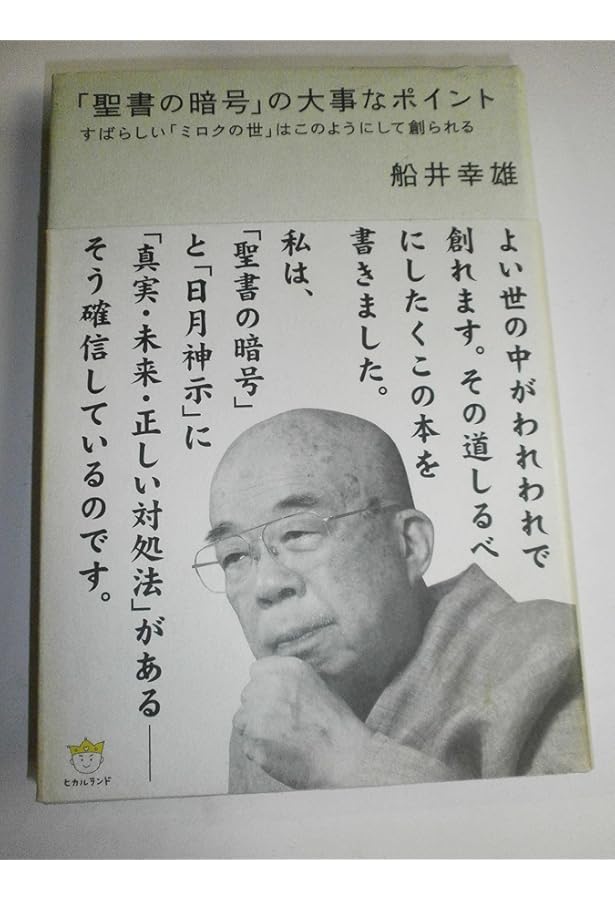 「聖書の暗号」の大事なポイント
すばらしい「ミロクの世」はこのようにして創られる
船井幸雄
よい世の中がわれわれで
創れます。その道しるべ
にしたくこの本を
書きました。
私は、
「聖書の暗号」
と「日月神示」に
「真実・未来・正しい対処法」がある──
そう確信しているのです。
ヒカルランド